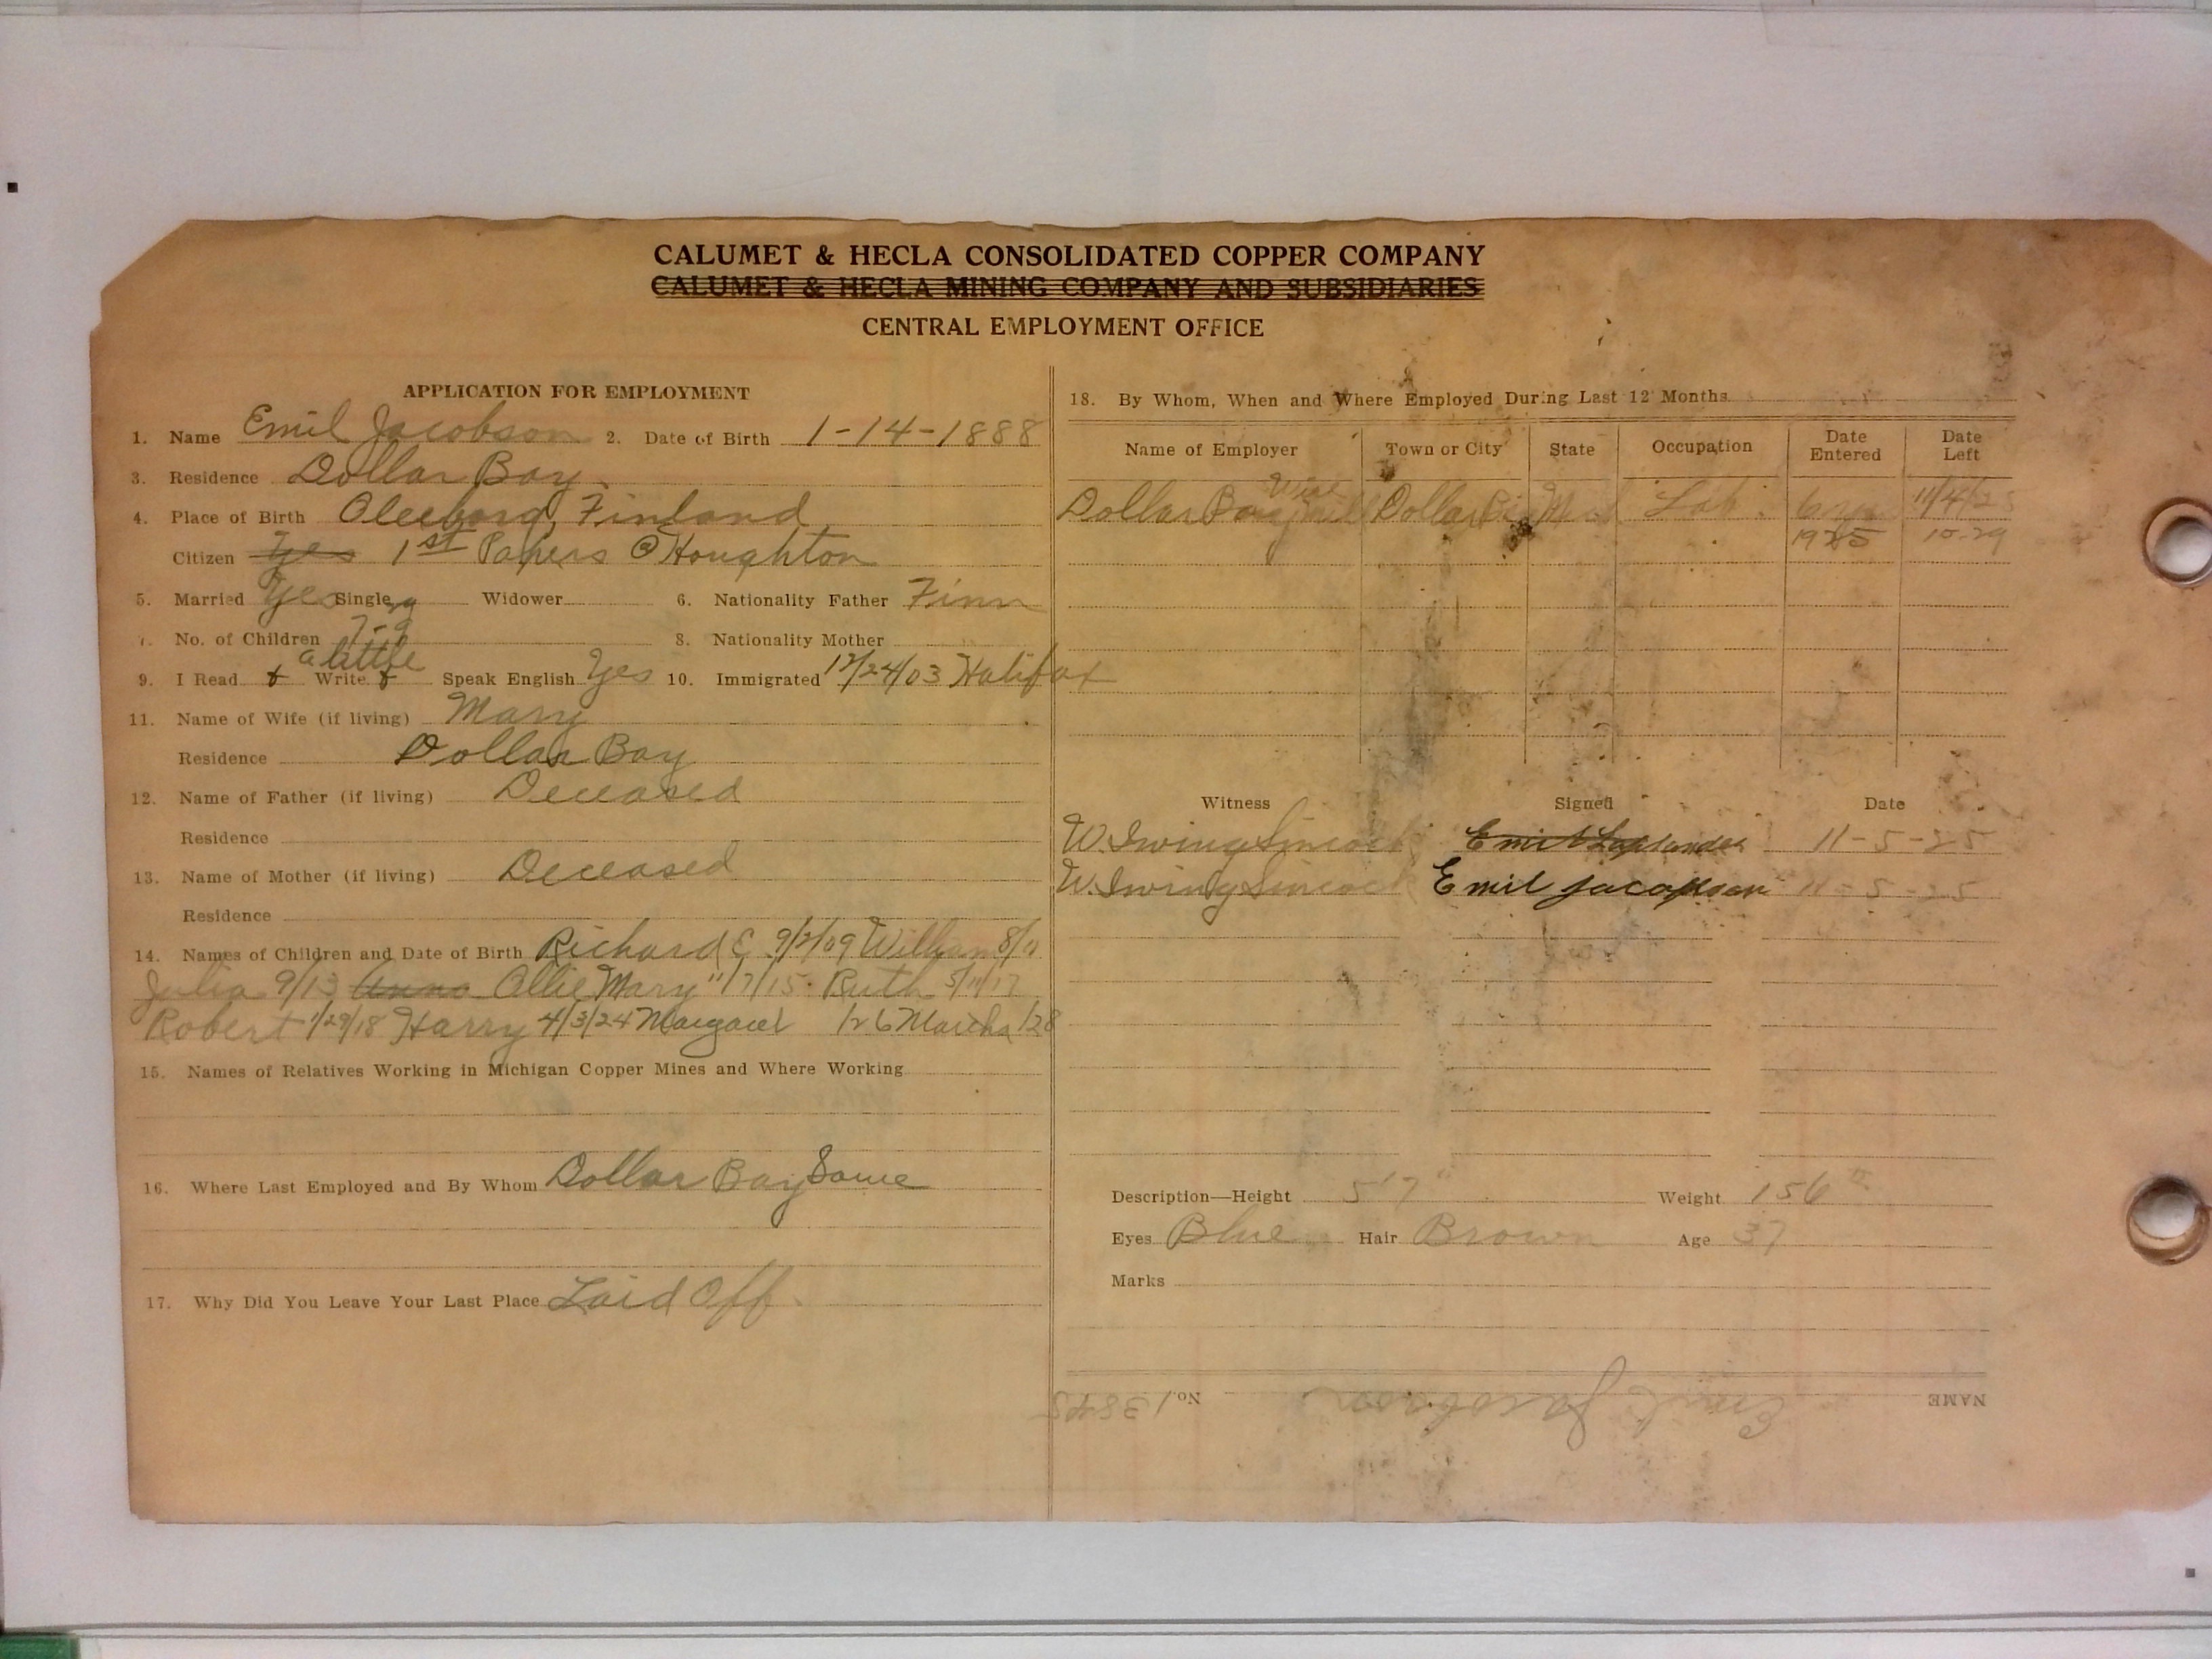 CALUMET & HECLA CONSOLIDATED COPPER COMPANY
CALUMET & HECLA MINING COMPANY AND SUBSIDIARIES
CENTRAL EMPLOYMENT OFFICE
APPLICATION FOR EMPLOYMENT
1. Name Emil Jacobson 2. Date of Birth 1-14-1888
3. Residence Dollar Bay.
4. Place of Birth Oleeborg, Finland
Citizen Yes 1st Papers @ Houghton
5. Married Yes Single Widower 6. Nationality Father Finn
7. No. of Children 7-9 8. Nationality Mother
a little
9. I Read & Write & Speak English Yes 10. Immigrated 12/24/03 Halifax
11. Name of Wife (if living) Mary
Residence Dollar Bay
12. Name of Father (if living) Deceased
Residence
13. Name of Mother (if living) Deceased
Residence
14. Names of Children and Date of Birth Richard E. 9/2/09 William 8/11
Julia 9/13 Anna Ollie Mary 11/7/15 Ruth 5/11/17
Robert 1/29/18 Harry 4/3/24 Margaret 1/26 Martha 1/28
15. Names of Relatives Working in Michigan Copper Mines and Where Working
16. Where Last Employed and By Whom Dollar Bay Same
17. Why Did You Leave Your Last Place Laid Off.
18. By Whom, When and Where Employed During Last 12 Months
Name of Employer Town or City State Occupation Date Entered Date Left
Wire
Dollar Bay Mill Dollar Bay Mich Lab. 11/4/25
1925 10-29
Witness Signed Date
W. Irwing Sincock Emil Laplander 11-5-25
W. Irwing Sincock Emil jacopson 11-5-25
Description—Height 5'7" Weight 156
Eyes Blue Hair Brown Age 37
Marks
NAME Emil Jacobson No. 13848